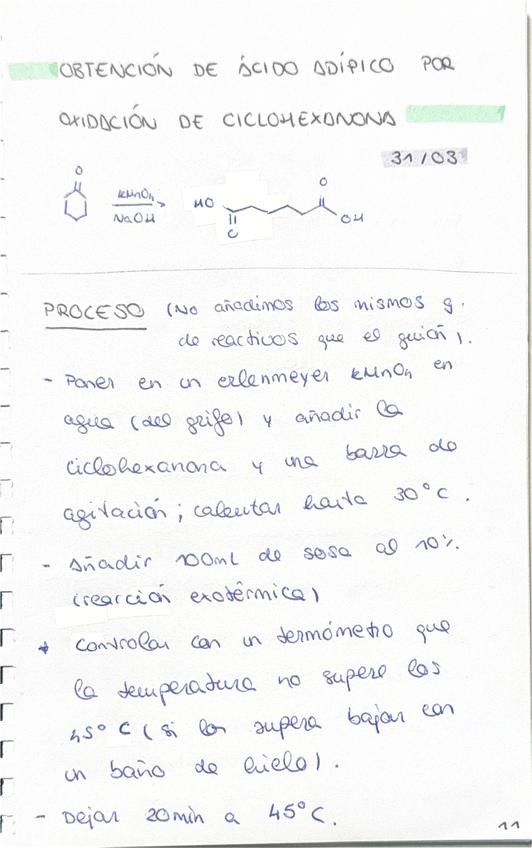 OBTENCIÓN DE ÁCIDO ADÍPICO POR
OXIDACIÓN DE CICLOHEXANONA
31/03
O
KMnO4
NaOH
HO
O
O
OH
PROCESO (No añadimos los mismos g.
de reactivos que el guión).
- Poner en un erlenmeyer KMnO4 en
agua (del grifo) y añadir la
ciclohexanona y una barra de
agitación; calentar hasta 30°C.
- Añadir 100mL de sosa al 10%.
(reacción exotérmica)
* Controlar con un termómetro que
la temperatura no supere los
45°C (si los supera bajar con
un baño de hielo).
- Dejar 20min a 45°C.
11